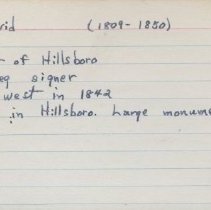 rid (1809-1850)
r of Hillsboro
eq signer
west in 1842
in Hillsboro. Large monume